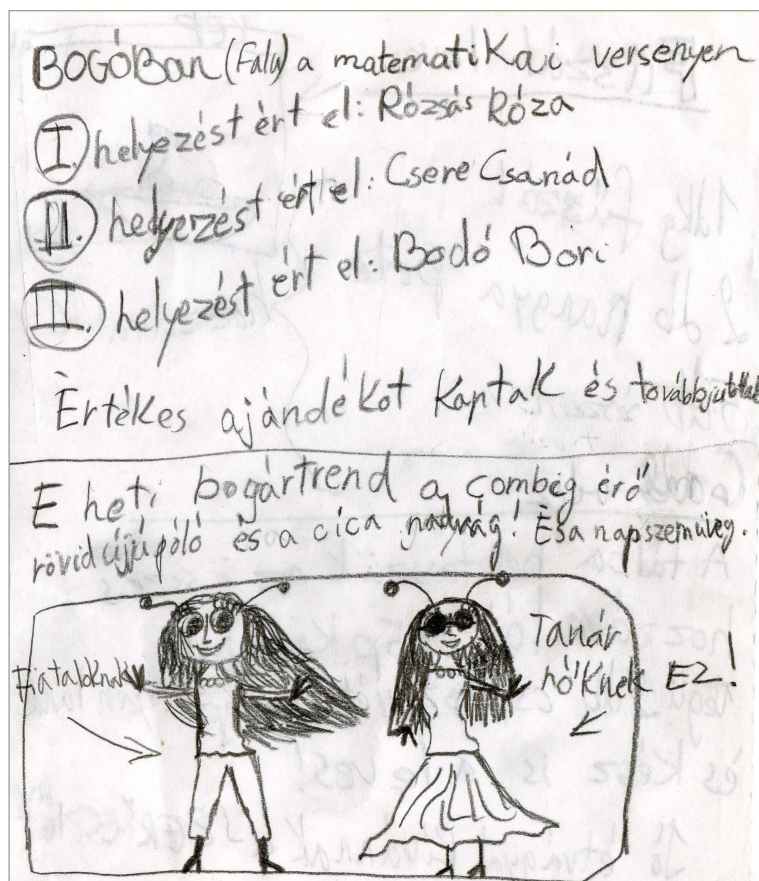 BOGÓBan (Falu) a matematikai versenyen
I. helyezést ért el: Rózsás Róza
II. hegyezést ért el: Csere Csanád
III. helyezést ért el: Bodó Bori
Értékes ajándékot kaptak és továbbjutottak
E heti bogártrend a combig érő
rövidújjú póló és a cica nadrág! És a napszemüveg.
Fiataloknak
Tanár
nőknek EZ!